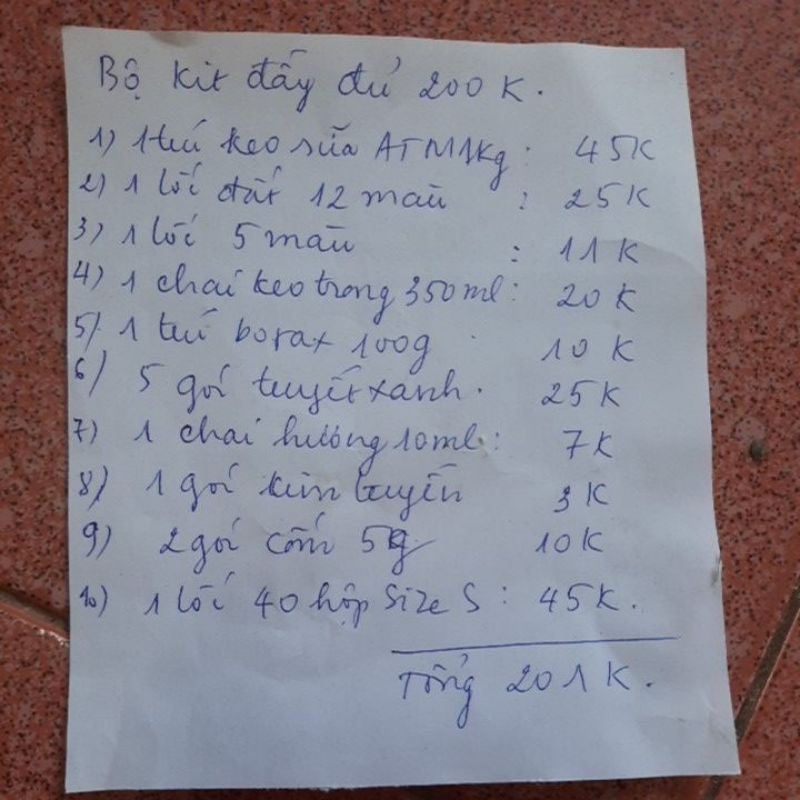 Bộ kit đầy đủ 200K.
1) 1 túi keo sữa ATM 1Kg : 45K
2) 1 lốc đất 12 màu : 25K
3) 1 lốc 5 màu : 11K
4) 1 chai keo trong 350ml : 20K
5) 1 túi borax 100g 10K
6) 5 gói tuyết xanh. 25K
7) 1 chai hương 10ml : 7K
8) 1 gói kim tuyến 3K
9) 2 gói cốm 5g 10K
10) 1 lốc 40 hộp Size S : 45K.
Tổng 201K.